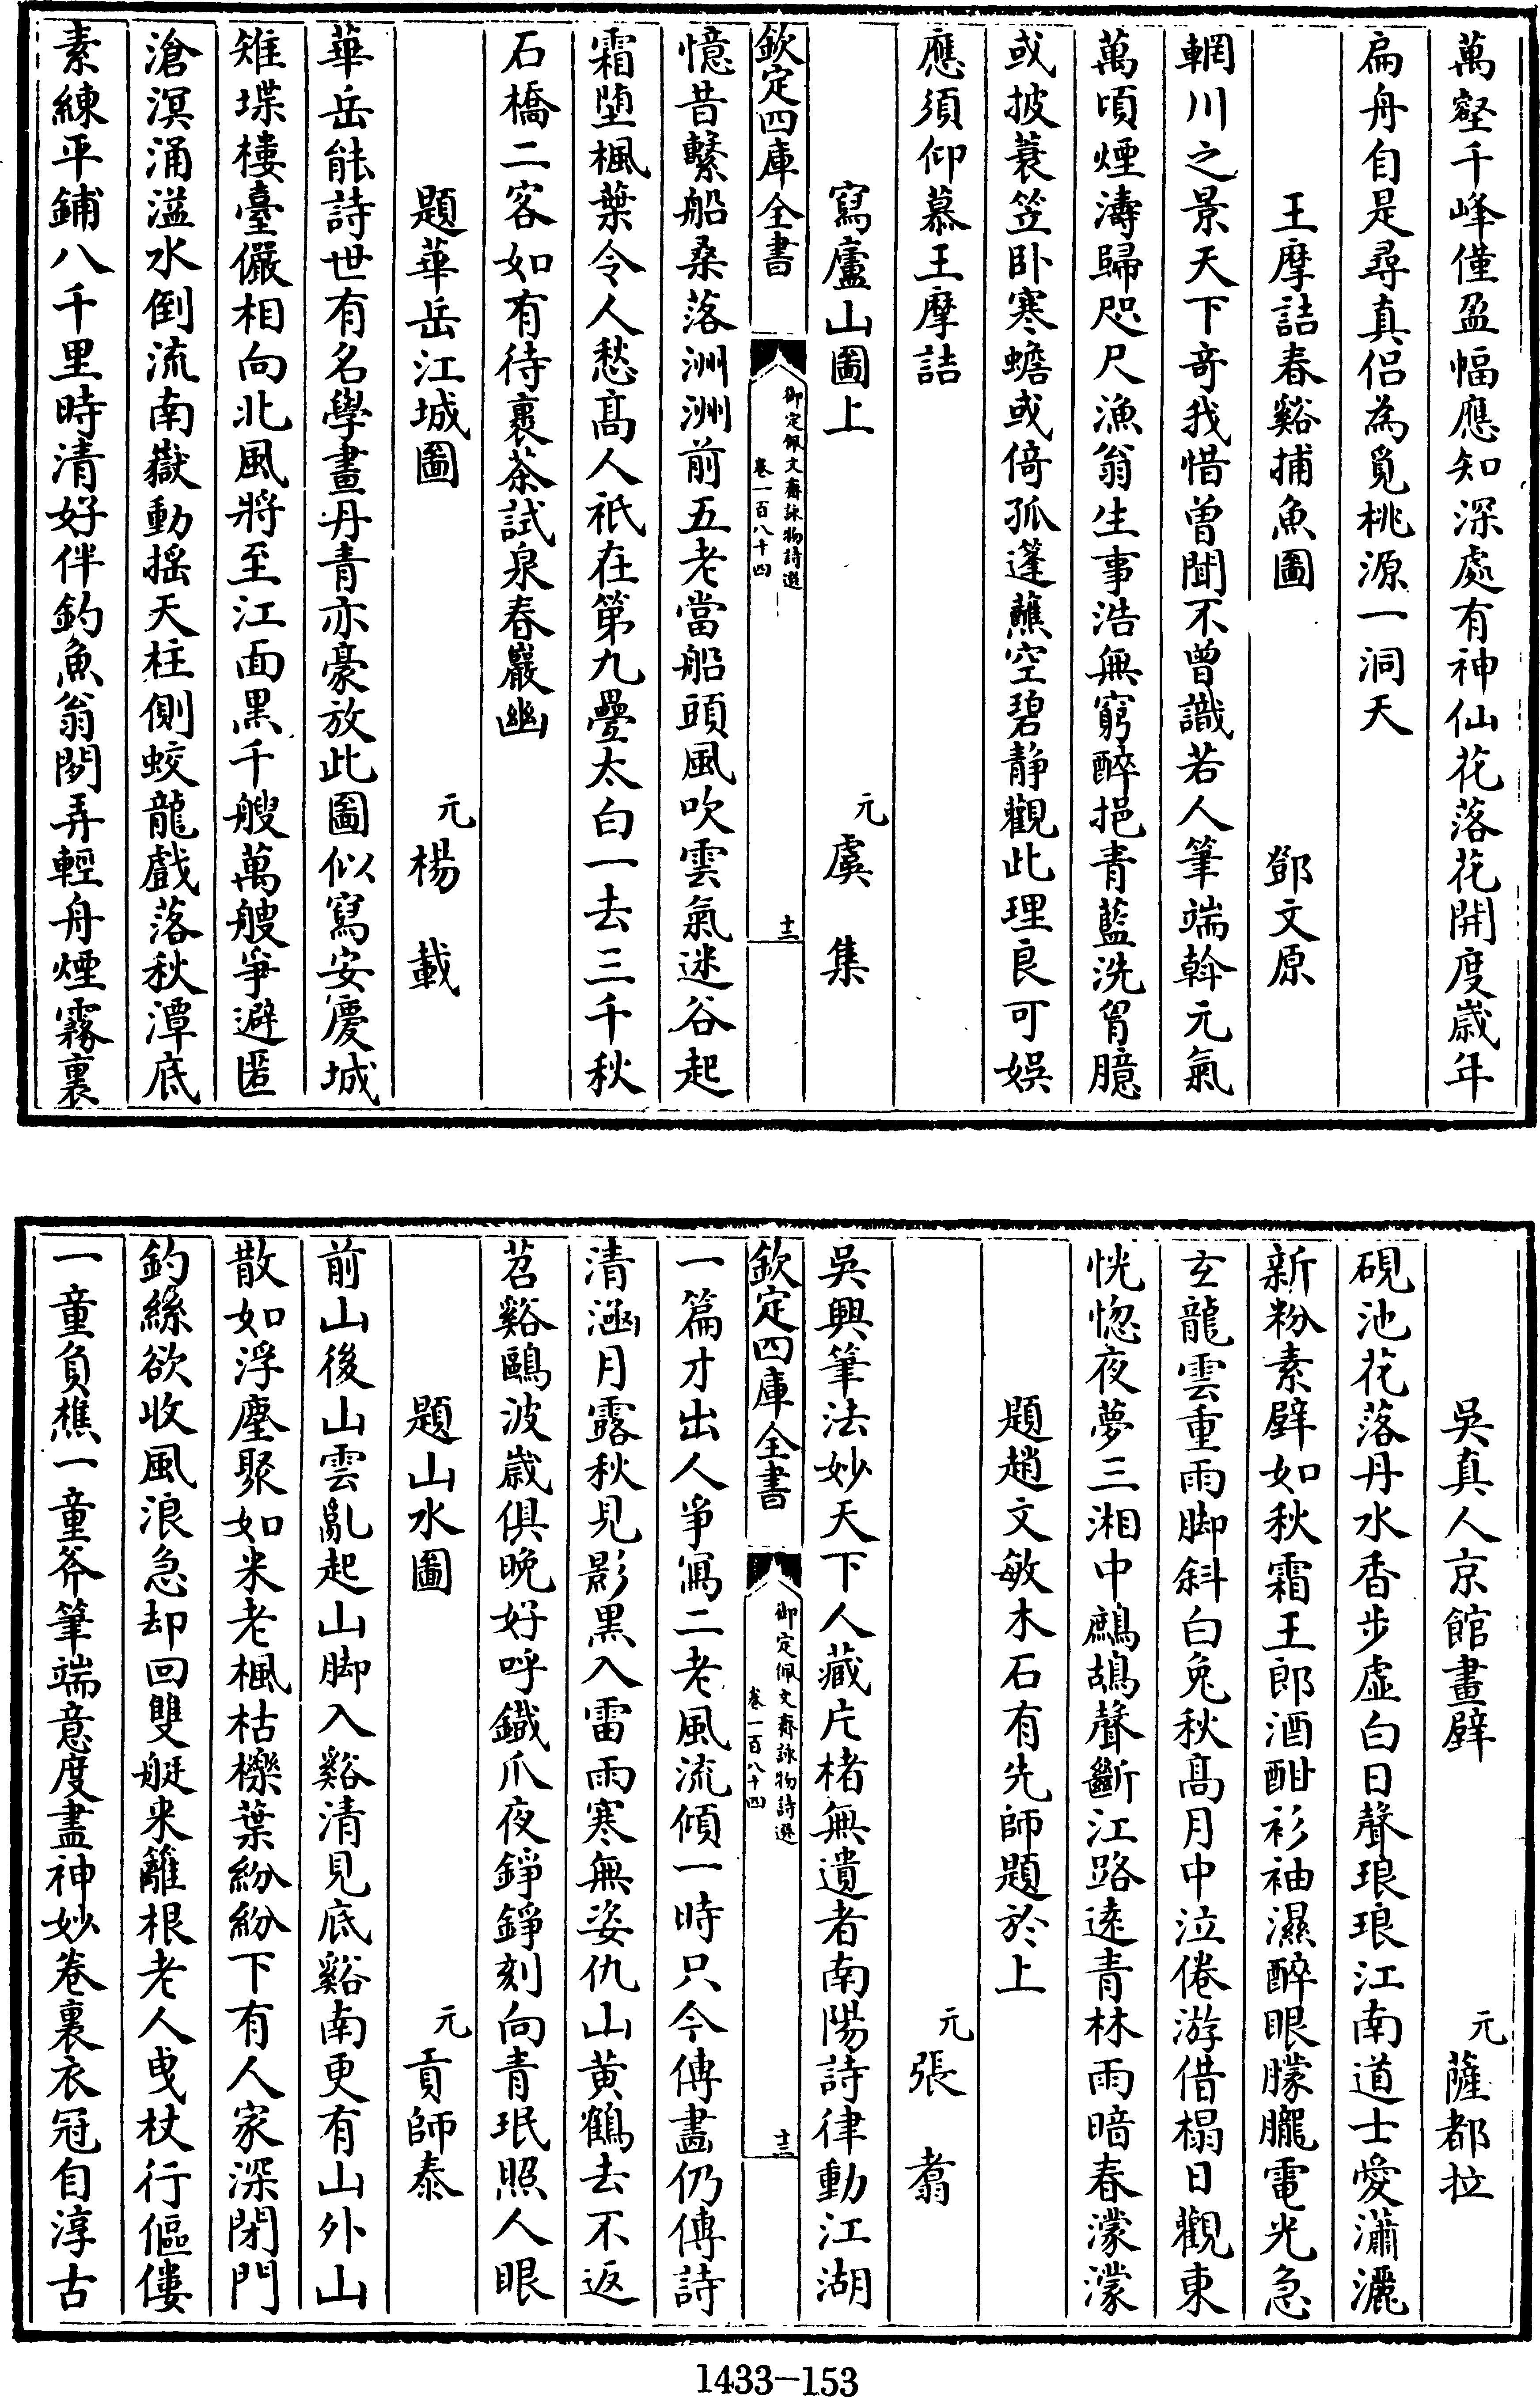 萬壑千峰僅盈幅應知深處有神仙花落花開度歲年
扁舟自是尋真侶為覓桃源一洞天
王摩詰春谿捕魚圖 鄧文原
輞川之景天下奇我惜曾聞不曾識若人筆端斡元氣
萬頃煙濤歸咫尺漁翁生事浩無窮醉挹青藍洗胷臆
或披蓑笠卧寒蟾或倚孤篷蘸空碧靜觀此理良可娛
應須仰慕王摩詰
寫廬山圖上 元虞集
欽定四庫全書 御定佩文齋詠物詩選 卷一百八十四 十二
憶昔繫船桑落洲洲前五老當船頭風吹雲氣迷谷起
霜墮楓葉令人愁髙人祇在第九疊太白一去三千秋
石橋二客如有待裹茶試泉春巖幽
題華岳江城圖 元楊載
華岳能詩世有名學畫丹青亦豪放此圖似寫安慶城
雉堞樓臺儼相向北風將至江面黒千艘萬艘爭避匿
滄溟涌溢水倒流南嶽動搖天柱側蛟龍戲落秋潭底
素練平鋪八千里時清好伴釣魚翁閉弄輕舟煙霧裏
吳真人京館畫壁 元薩都拉
硯池花落丹水香步虛白日聲琅琅江南道士愛瀟灑
新粉素壁如秋霜王郎酒酣衫袖濕醉眼朦朧電光急
玄龍雲重雨脚斜白兔秋髙月中泣倦游借榻日觀東
恍惚夜夢三湘中鷓鴣聲斷江路逺青林雨暗春濛濛
題趙文敏木石有先師題於上
元張翥
吳興筆法妙天下人藏片楮無遺者南陽詩律動江湖
欽定四庫全書 御定佩文齋詠物詩選 卷一百八十四 十三
一篇才出人爭寫二老風流傾一時只今傳畫仍傳詩
清涵月露秋見影黒入雷雨寒無姿仇山黄鶴去不返
苕谿鷗波歲俱晚好呼鐵爪夜錚錚刻向青珉照人眼
題山水圖 元貢師泰
前山後山雲亂起山脚入谿清見底谿南更有山外山
散如浮塵聚如米老楓枯櫟葉紛紛下有人家深閉門
釣絲欲收風浪急却回雙艇来籬根老人曵杖行傴僂
一童負樵一童斧筆端意度盡神妙卷裏衣冠自淳古
1433-153